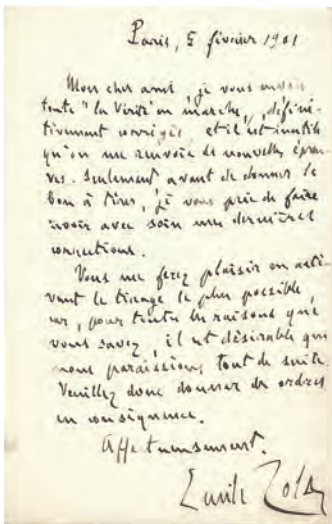 Paris, 5 février 1901
Mon cher ami, je vous envoie
toute "la Vérité" en marche, défini-
tivement corrigée, et il est inutile
qu'on me renvoie de nouvelles épreu-
ves. Seulement avant de donner le
bon à tirer, je vous prie de faire
revoir avec soin mes dernières
corrections.
Vous me ferez plaisir en acti-
vant le tirage le plus possible,
car, pour toutes les raisons que
vous savez, il est désirable que
nous paraissions tout de suite.
Veuillez donc donner des ordres
en conséquence.
Affectueusement.
Emile Zola